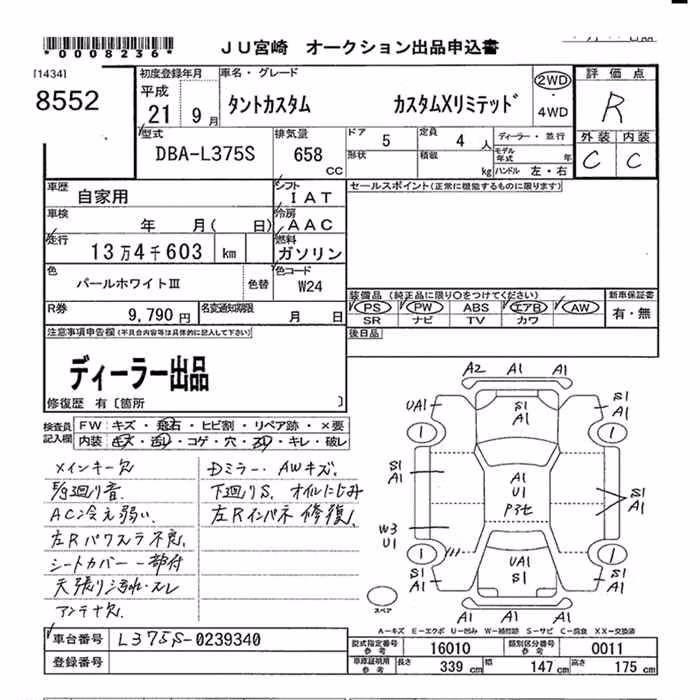 *0008236*
JU宮崎 オークション出品申込書
[1434]
8552
初度登録年月
平成
21 9月
車名・グレード
タントカスタム カスタムXリミテッド
2WD
4WD
評価点
R
外装 内装
C C
型式
DBA-L375S
排気量
658 CC
ドア 5
形状
定員 4人
積載 kg
ディーラー・並行
モデル年式 年
ハンドル 左・右
車歴 自家用
シフト IAT
車検 年 月( 日)
冷房 AAC
走行 13万4千603 km
燃料 ガソリン
色 パールホワイトⅢ 色替
色コード W24
R券 9,790円
名変通知期限 月 日
セールスポイント(正常に機能するものに限ります)
装備品(純正品に限り○をつけてください)
PS PW ABS エアB AW
SR ナビ TV カワ
新車保証書
有・無
後日品
注意事項申告欄(不具合内容等は具体的に記入して下さい)
ディーラー出品
修復歴 有〔箇所 〕
検査員記入欄
FW キズ・飛石・ヒビ割・リペア跡・×要
内装 キズ・汚レ・コゲ・穴・スレ・キレ・破レ
メインキー欠
AC冷え弱い
左Rパワスラ不良
シートカバー一部付
天張り汚れ・スレ
アンテナ欠
Dミラー・AWキズ
下廻りS、オイルにじみ
左Rインパネ修復
A2 A1 A1
UA1 S1 A1 S1 A1
1 1
S1 A1
A1 U1
S1 A1
W3 U1
1 1
UA1 S1
S1 A1
A1 A1 A1
スペア
A-キズ E-エクボ U-凹み W-補修跡 S-サビ C-腐食 XX-交換済
車台番号 L375S-0239340
登録番号
型式指定番号 参考 16010
類別区分番号 参考 0011
車庫証明用 参考 長さ 339cm 幅 147cm 高さ 175cm